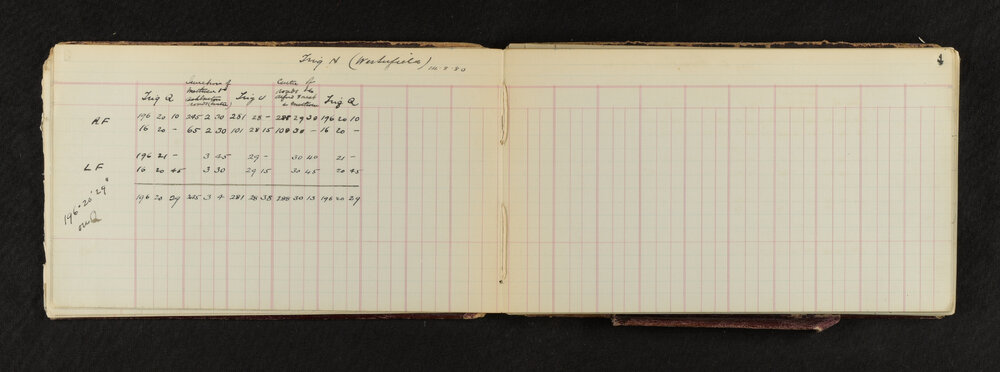 4
Trig H (Westerfield) 14.8.80
Trig Q Junction of Methven Rd Trig U Centre of roads Trig Q
RF 196 20 10 245 2 30 281 28 — 288 29 30 196 20 10
16 20 — 65 2 30 101 28 15 108 30 — 16 20 —
196 21 — 3 45 29 — 30 40 21 —
LF 16 20 45 3 30 29 15 30 45 20 45
196 20 29 245 3 4 281 28 38 288 30 13 196 20 29
196° 20' 29"